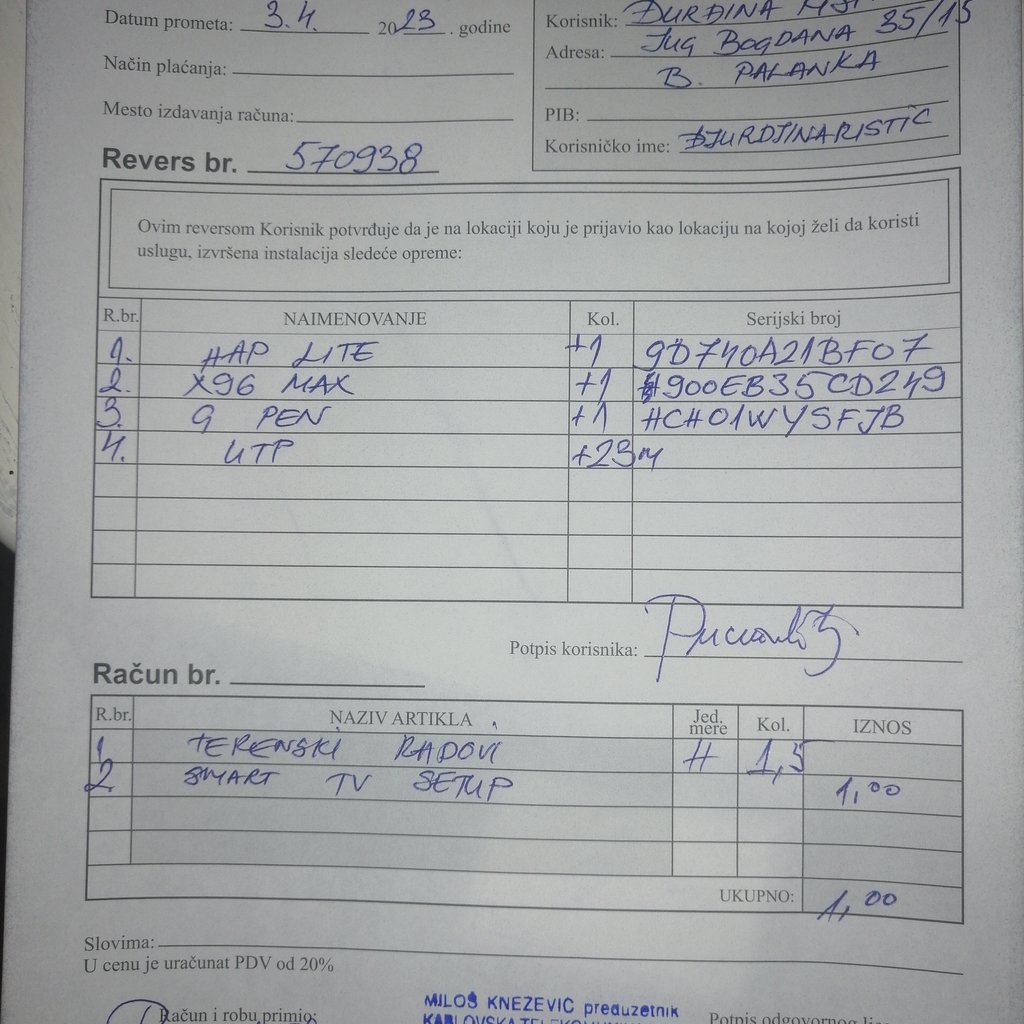 Datum prometa: 3.4. 2023. godine
Način plaćanja:
Mesto izdavanja računa:
Revers br. 570938
Korisnik: ĐURĐINA
Adresa: JUG BOGDANA 35/15
B. PALANKA
PIB:
Korisničko ime: DJURDJINARISTIC
Ovim reversom Korisnik potvrđuje da je na lokaciji koju je prijavio kao lokaciju na kojoj želi da koristi
uslugu, izvršena instalacija sledeće opreme:
R.br. NAIMENOVANJE Kol. Serijski broj
1. HAP LITE +1 9D740A21BF07
2. X96 MAX +1 H900EB35CD249
3. G PEN +1 HCH01WYSFJB
4. UTP +23m
Potpis korisnika:
Račun br.
R.br. NAZIV ARTIKLA Jed. mere Kol. IZNOS
1 TERENSKI RADOVI H 1,5
2. SMART TV SETUP 1,00
UKUPNO: 1,00
Slovima:
U cenu je uračunat PDV od 20%
Račun i robu primio:
MILOŠ KNEŽEVIĆ preduzetnik
Potpis odgovornog